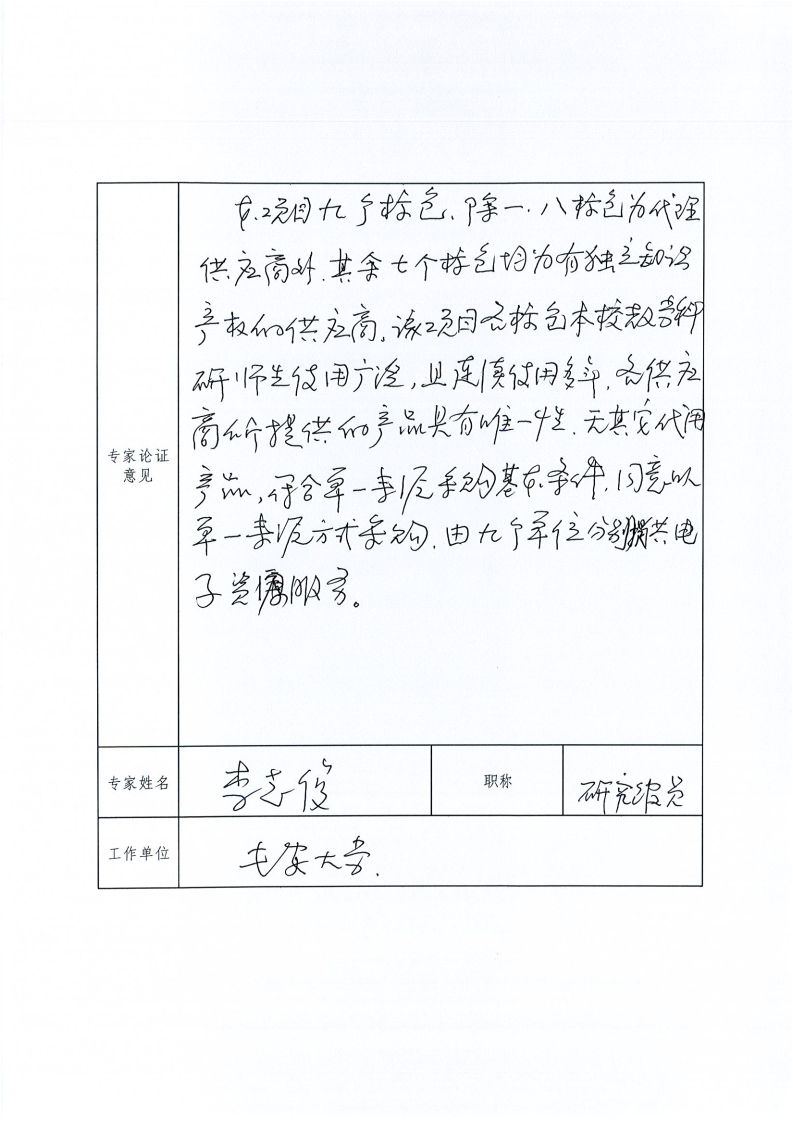 本项目九个标包、除一、八标包为代理
供应商外,其余七个标包均为有独立知识
产权的供应商,该项目各标包本校教学科
研师生使用广泛,且连续使用多年,各供应
商所提供的产品具有唯一性,无其它代用
专家论证
意见
产品,符合单一来源采购基本条件,同意以
单一来源方式采购,由九个单位分别提供电
子资源服务。
专家姓名 李志俊 职称 研究馆员
工作单位 长安大学.